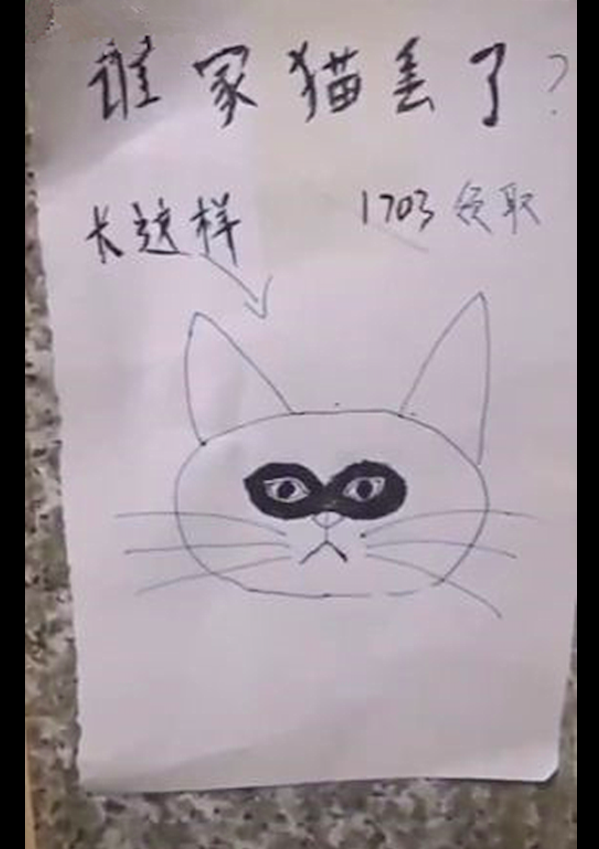 谁家猫丢了?
长这样
1703 领取